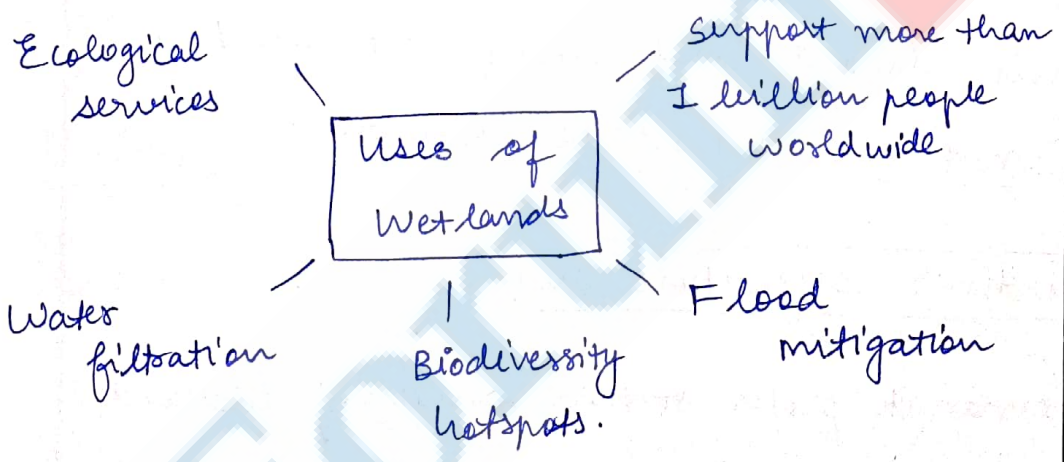 Ecological
services
Support more than
1 billion people
worldwide
Uses of
Wetlands
Water
filtration
Biodiversity
hotspots.
Flood
mitigation
Forum